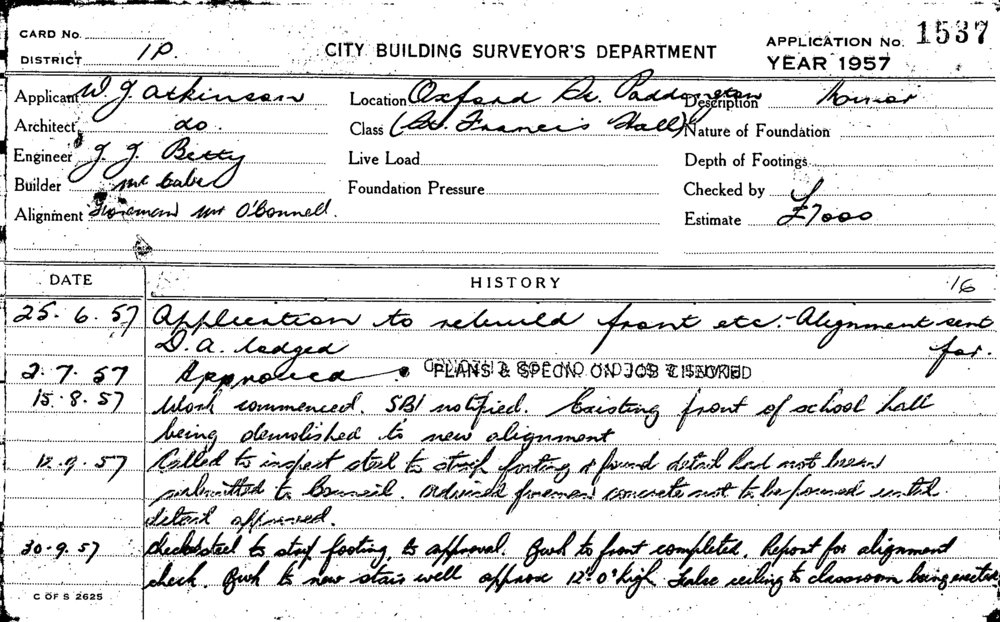 CARD No.
DISTRICT 1P.
CITY BUILDING SURVEYOR'S DEPARTMENT
APPLICATION No. 1537
YEAR 1957
Applicant W J Atkinson
Location Oxford St. Paddington
Description Minor
Architect do.
Class (St. Francis Hall)
Nature of Foundation
Engineer J. J. Betty
Live Load
Depth of Footings
Builder McCabe
Foundation Pressure
Checked by
Alignment Foreman Mr O'Connell.
Estimate £7000
DATE HISTORY 16
25. 6. 57 Application to rebuild front etc. - Alignment sent for.
D.A. lodged
2. 7. 57 Approved
15. 8. 57 Work commenced. SBI notified. Existing front of school hall
being demolished to new alignment
12. 9. 57 Called to inspect steel to strip footing & found detail had not been
submitted to Council. Advised foreman concrete not to be poured until
detail approved.
30. 9. 57 Checked steel to strip footing to approval. Bwk to front completed. Report for alignment
check. Bwk to new stair well approx 12'0" high. False ceiling to classroom being erected
C OF S 2625